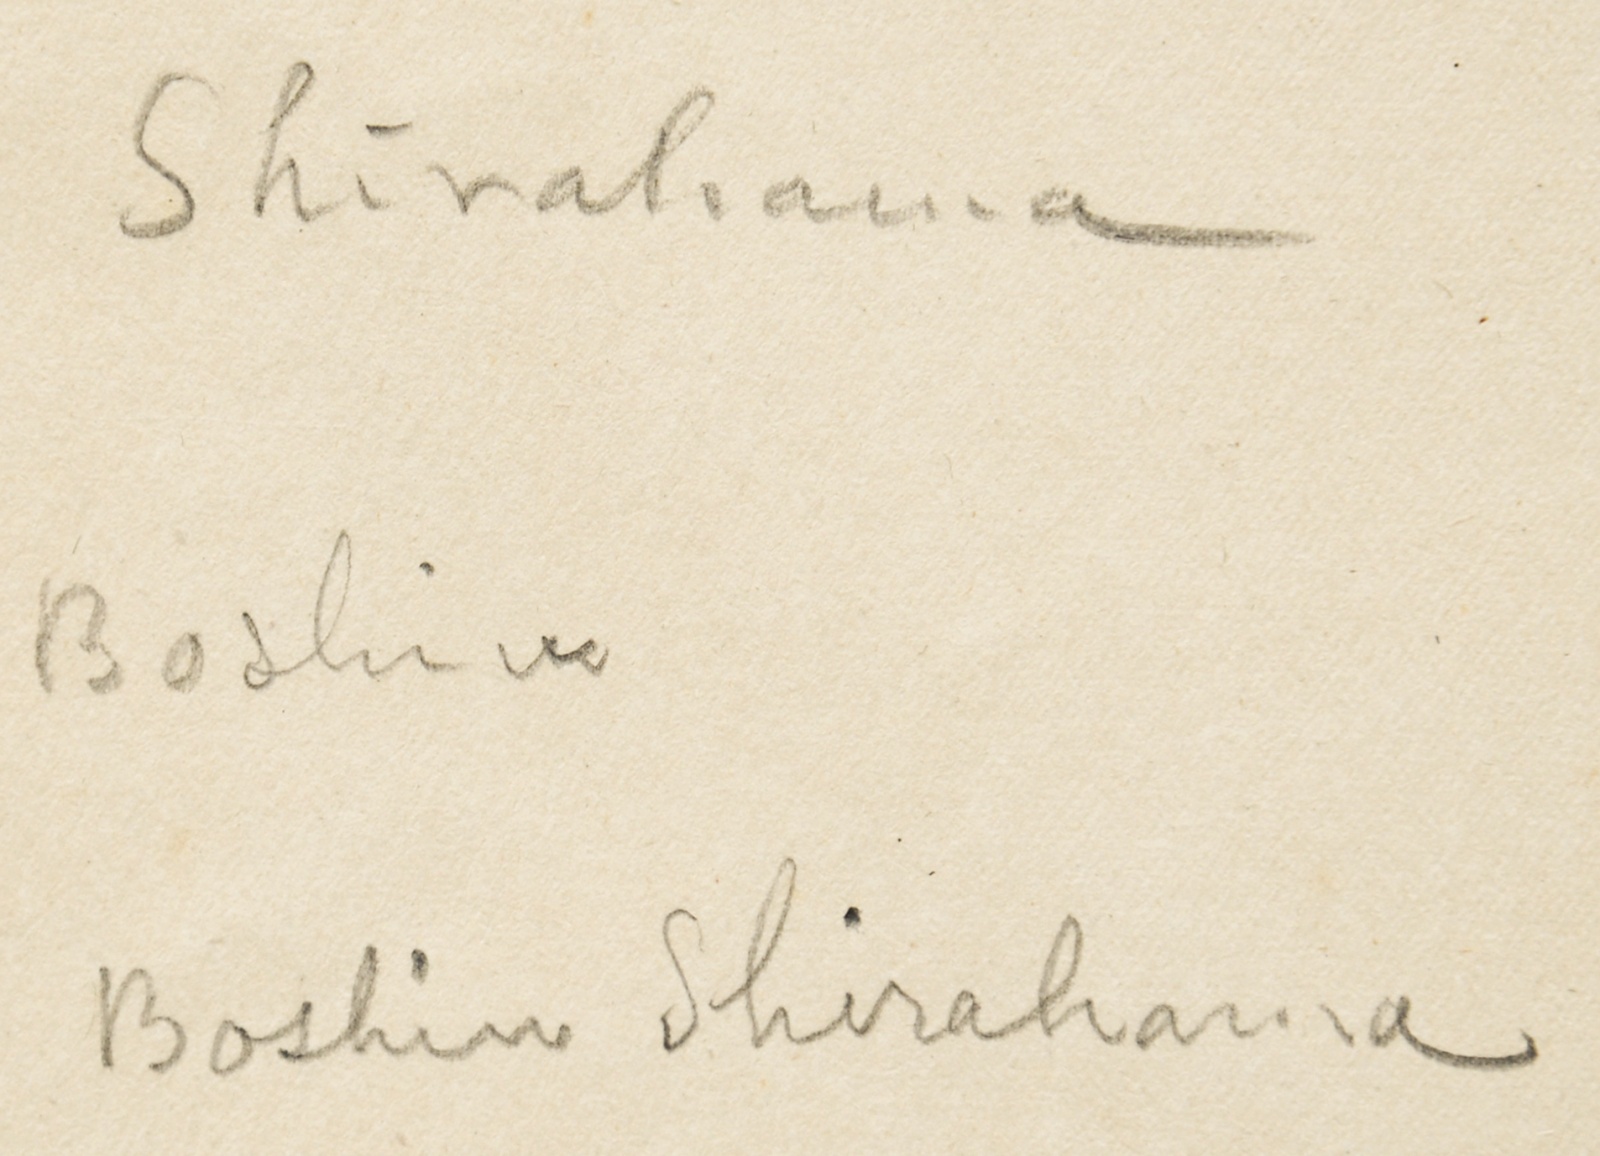 Shirahama
Boshin
Boshin Shirahama